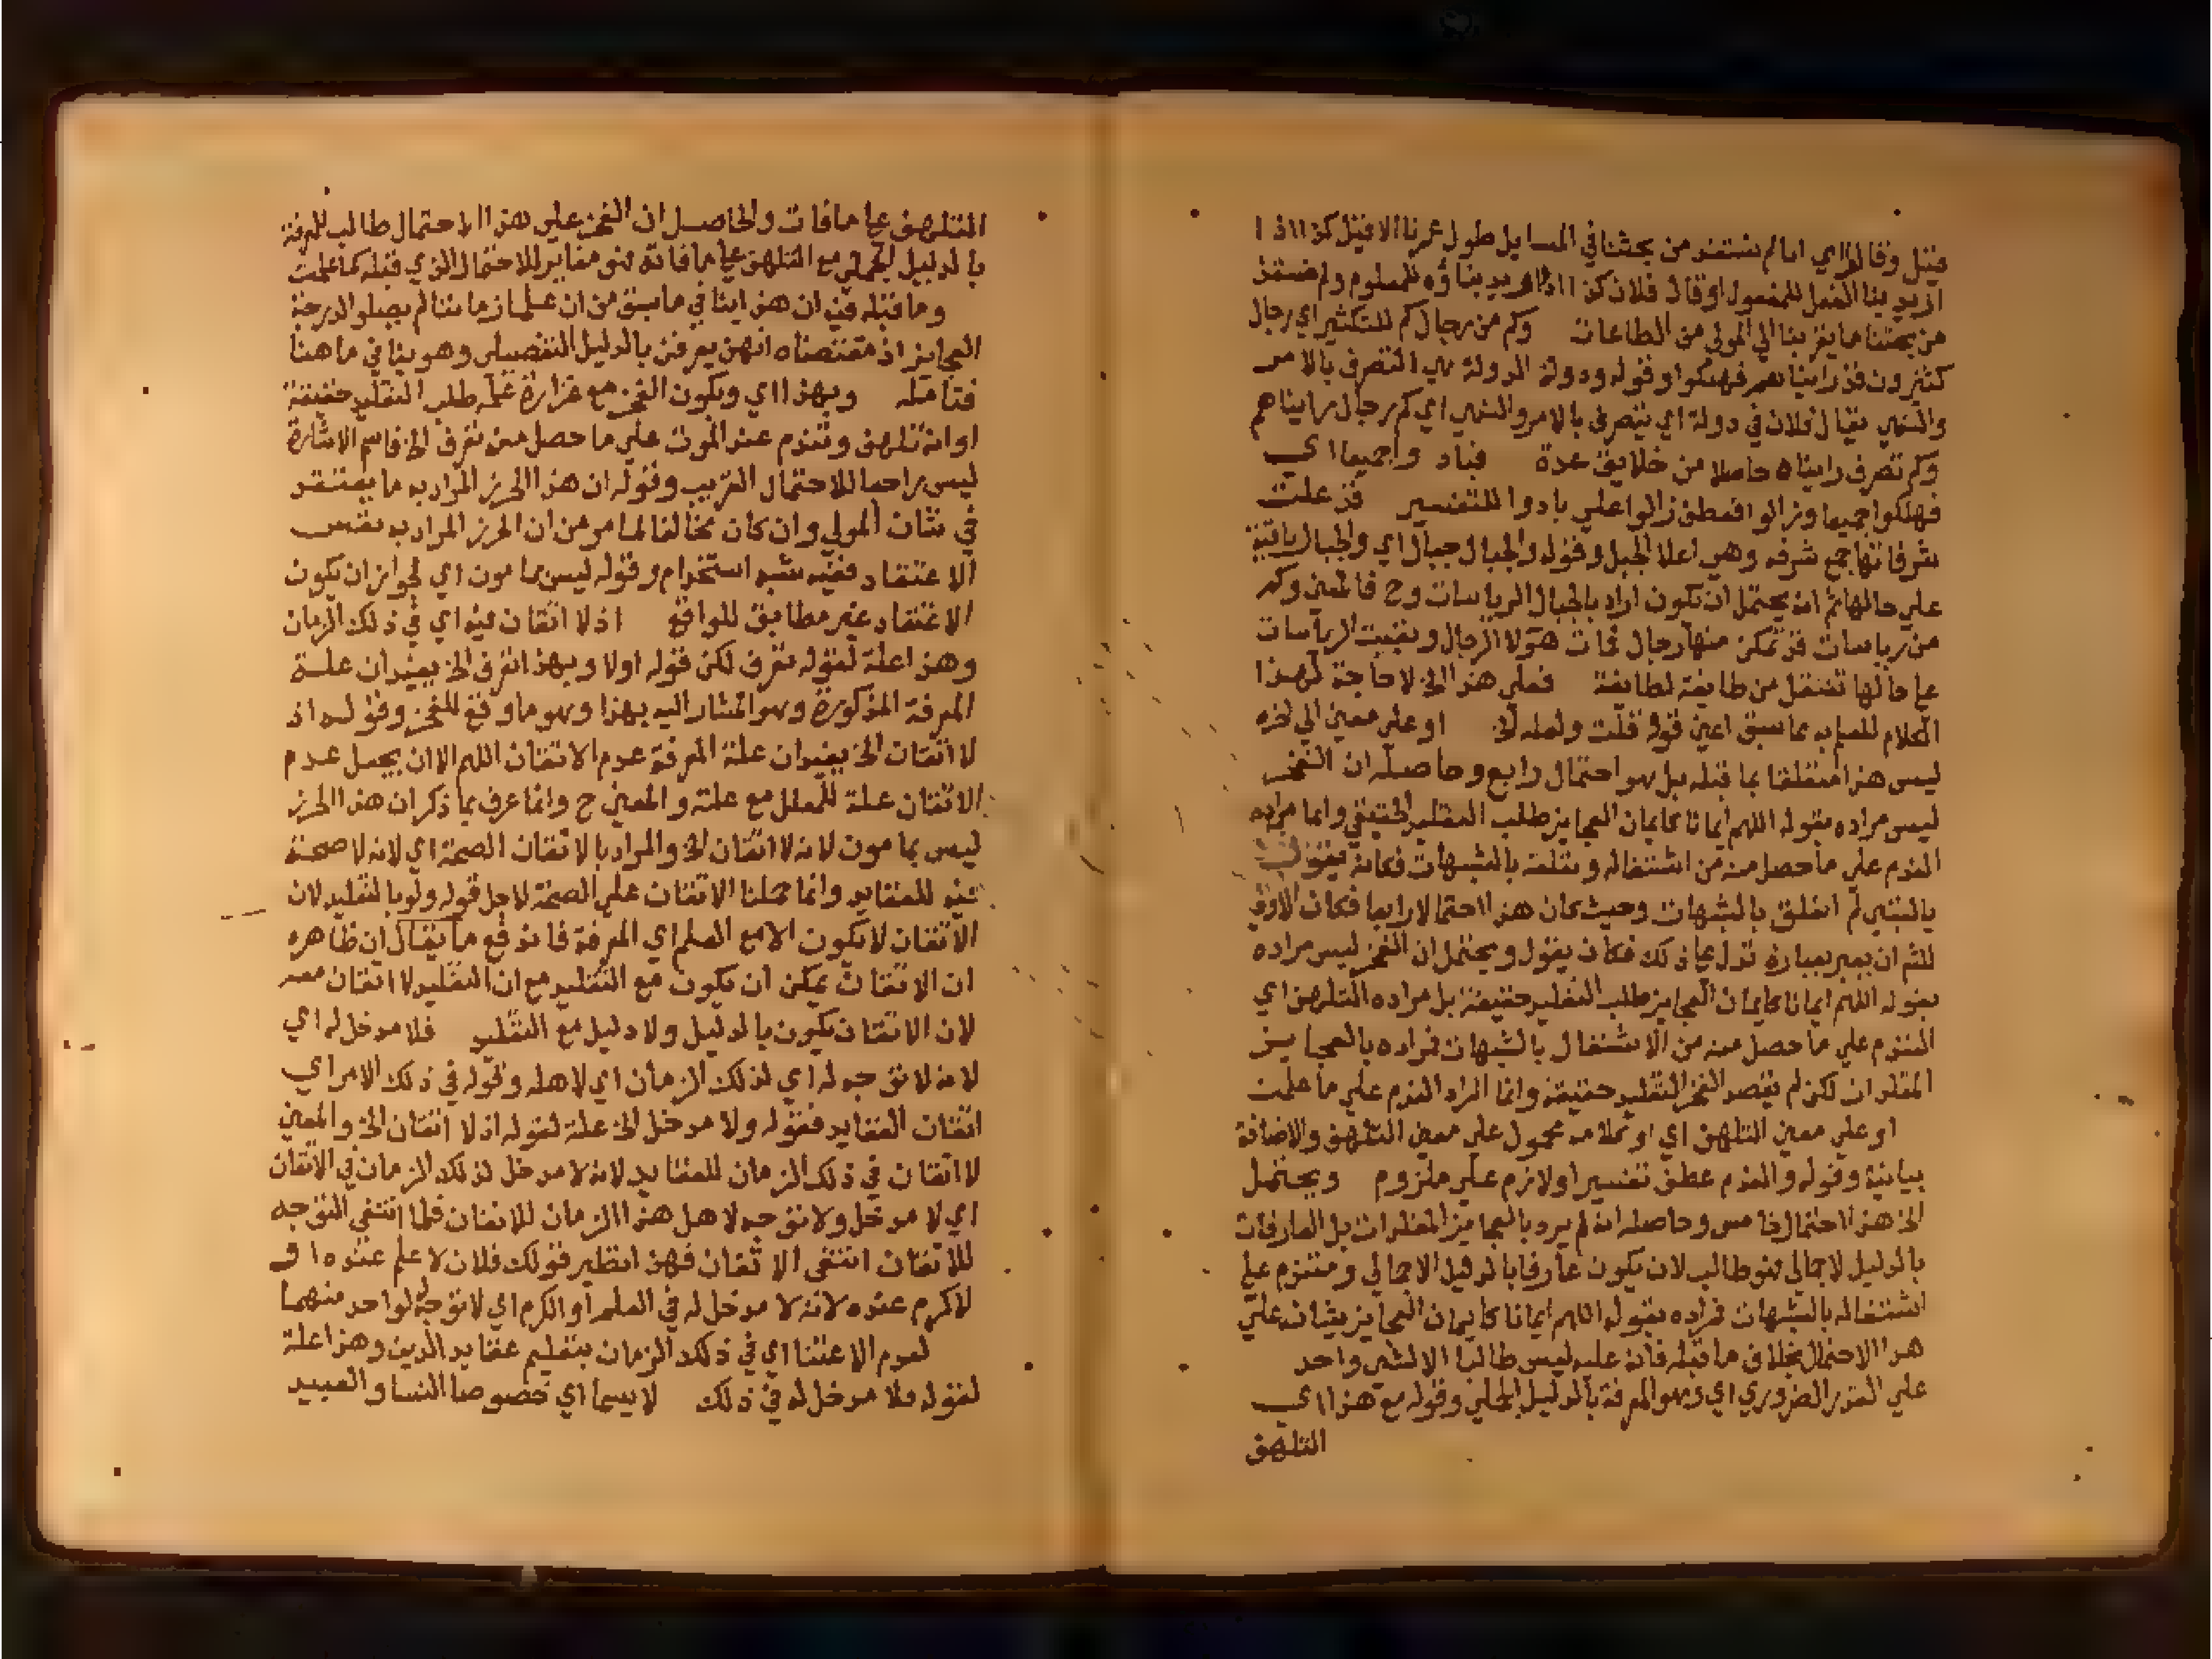 قيل وقالوا اي امالم نستفد من بحثنا في المسايل طول عمرنا الا قيل كذا اذا
اريد بنا الفعل للمفعول او قال فلان كذا اذا اريد بناؤه للمعلوم ولم نستفد
من بحثنا ما يقربنا الي المولي من الطاعات وكم من رجال كم للتكثير اي رجال
كثيرون قد راينا هم فهلكوا وقوله ودولة الدولة هي التصرف بالامر
والنهي يقال فلان في دولة اي يتصرف بالامر والنهي اي كم رجال رايناهم
وكم تصرف رايناه حاصلا من خلايق عدة فباد واجميعا اي
فهلكوا جميعا وزالوا فعطف زالوا علي بادوا للتفسير قد علت
شرفاتها جمع شرفه وهي اعلا الجبل وقوله والجبال جبال اي والجبال باقية
علي حالها ثم انه يحتمل ان يكون اراد بالجبال الرياسات وح فالمعني وكم
من رياسات قد تمكن منها رجال فات هولا الرجال وبقيت الرياسات
علي حالها تنتقل من طايفة لطايفة فعلي هذا الخ لا حاجة لهذا
الكلام للعلم به مما سبق اعني قوله قلت ولعله الخ او علي معني الي اخره
ليس هذا متعلقا بما قبله بل هو احتمال رابع وحاصله ان الفخر
ليس مراده بقوله اللهم ايمانا كايمان العجايز طلب التقليد الحقيقي وانما مراده
الندم علي ما حصل منه من اشتغاله وتعلقه بالشبهات فكانه يقول
ياليتني لم اتعلق بالشبهات وحيث كان هذا احتمالا رابعا فكان الاولي
للشم ان يعبر بعبارة تدل علي ذلك فكان يقول ويحتمل ان الفخر ليس مراده
بقوله اللهم ايمانا كايمان العجايز طلب التقليد حقيقة بل مراده التلهف اي
الندم علي ما حصل منه من الاشتغال بالشبهات فمراده بالعجايز
المقلدات لكن لم يقصد الفخر التقليد حقيقة وانما المراد الندم علي ما علمت
او علي معني التلهف اي او كلامه محمول علي معني التلهف والاضافة
بيانية وقوله والندم عطف تفسير او لازم علي ملزوم ويحتمل
الخ هذا احتمال خامس وحاصله انه لم يرد بالعجايز المقلدات بل العارفات
بالدليل الاجمالي فهو طالب لان يكون عارفا بالدليل الاجمالي ومتندم علي
اشتغاله بالشبهات فمراده بقوله اللهم ايمانا كايمان العجايز يشان علي
هذا الاحتمال بخلاف ما قبله فانه عليه ليس طالبا الا لشي واحد
علي القدر الضروري اي وهو المعرفة بالدليل الجملي وقوله مع هذا اي
التلهف
المتلهف علي ما فات والحاصل ان الفخر علي هذا الاحتمال طالب للمعرفة
بالدليل الجملي مع التلهف علي ما فاته فهو مغاير للاحتمال الذي قبله كما علمت
وما قبله فيه ان هذا ينافي ما سبق من ان علما زماننا لم يصلوا لدرجة
العجايز اذ مقتضاه انهن يعرفن بالدليل التفصيلي وهو ينافي ما هنا
فتامله وبهذا اي وبكون الفخر مع غزارة علمه طلب التقليد حقيقة
او انه تلهف وتندم عند الموت علي ما حصل منه تعرف الخ فاسم الاشارة
ليس راجعا للاحتمال القريب وقوله ان هذا الحرز المراد به ما يعتقد
في شان المولي وان كان مخالفا لما مر من ان الحرز المراد به نفس
الاعتقاد ففيه شبه استخدام وقوله ليس بمامون اي لجواز ان يكون
الاعتقاد غير مطابق للواقع اذ لا اتقان فيه اي في ذلك الزمان
وهذا علة لقوله تعرف لكن قوله اولا وبهذا تعرف الخ يفيد ان علة
المعرفة المذكورة وهو المشار اليه بهذا وهو ما وقع للفخر وقوله اذ
لا اتقان الخ يفيد ان علة المعرفة عدم الاتقان اللهم الا ان يجعل عدم
الاتقان علة للمعلل مع علته والمعني ح وانما عرف بما ذكر ان هذا الحرز
ليس بمامون لانه لا اتقان الخ والمراد بالاتقان الصحة اي لانه لا صحة
فيه للعقايد وانما حملنا الاتقان علي الصحة لاجل قوله ولو بالتقليد لان
الاتقان لا يكون الا مع العلم اي المعرفة فاندفع ما يقال ان ظاهره
ان الاتقان يمكن ان يكون مع التقليد مع ان التقليد لا اتقان معه
لان الاتقان يكون بالدليل ولا دليل مع التقليد فلا مدخل له اي
لانه لا توجه له اي لذلك الزمان اي لاهله وقوله في ذلك الامر اي
اتقان العقايد فقوله ولا مدخل الخ علة لقوله اذ لا اتقان الخ والمعني
لا اتقان في ذلك الزمان للعقايد لانه لا مدخل لذلك الزمان في الاتقان
اي لا مدخل ولا توجه لاهل هذا الزمان للاتقان فلما انتفي التوجه
للاتقان انتفي الاتقان فهذا نظير قولك فلان لا علم عنده او
لا كرم عنده لانه لا مدخل له في العلم او الكرم اي لا توجه لواحد منهما
لعدم الاعتنا اي في ذلك الزمان بتعليم عقايد الدين وهذا علة
لقوله ولا مدخل له في ذلك لا سيما اي خصوصا النسا والعبيد